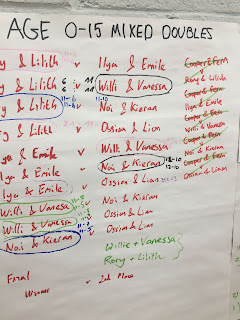 AGE 0-15 MIXED DOUBLES
y & Lilith v Ilya & Emile
y & Lilith 6 v 11 Willi & Vanessa
y & Lilith 11-6 11-6 v 11-10 Noi & Kieran
y & Lilith v Ossian & Lion
ya & Emile v Willi & Vanessa
ya & Emile v Noi & Kieran 11-8 11-10
lya & Emile v Ossian & Lian
Willi & Vanessa v Noi & Kieran
Willi & Vanessa v Ossian & Lian
Noi & Kieran v Ossian & Lian
Willie + Vanessa
Rory + Lilith
Final
Winner 2nd Place
Cooper & Fern
Rory & Lilith
Cooper & Fern
Ilya & Emile
Cooper & Fern
Willi & Vanessa
Cooper & Fern
Noi & Kieran
Cooper & Fern
Ossian & Lian